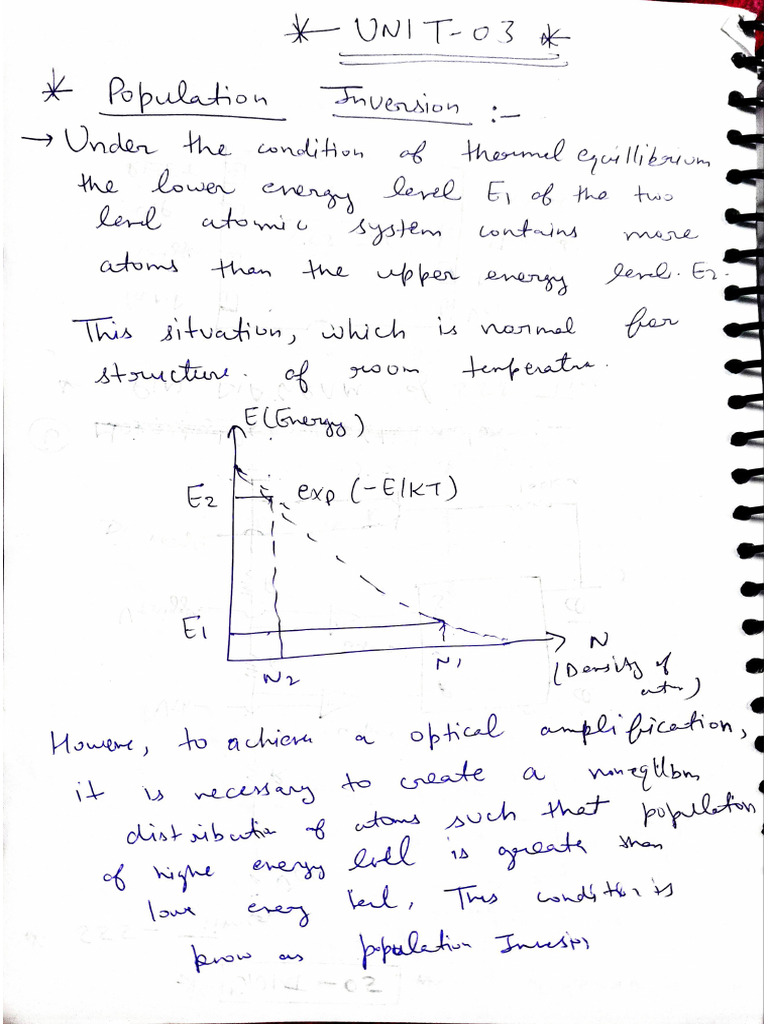 * UNIT-03 *
* Population Inversion :-
→ Under the condition of thermal equillibrium
the lower energy level E1 of the two
level atomic system contains more
atoms than the upper energy level. E2.
This situation, which is normal for
structure. of room temperatre.
E(Energy)
E2 exp (-E/KT)
E1
N2 N1 N
(Density of
atm)
However, to achieve a optical amplification,
it is necessary to create a
distribution of atoms such that population
of highe energy level is greate than
lowe enery level, This condition is
know as population